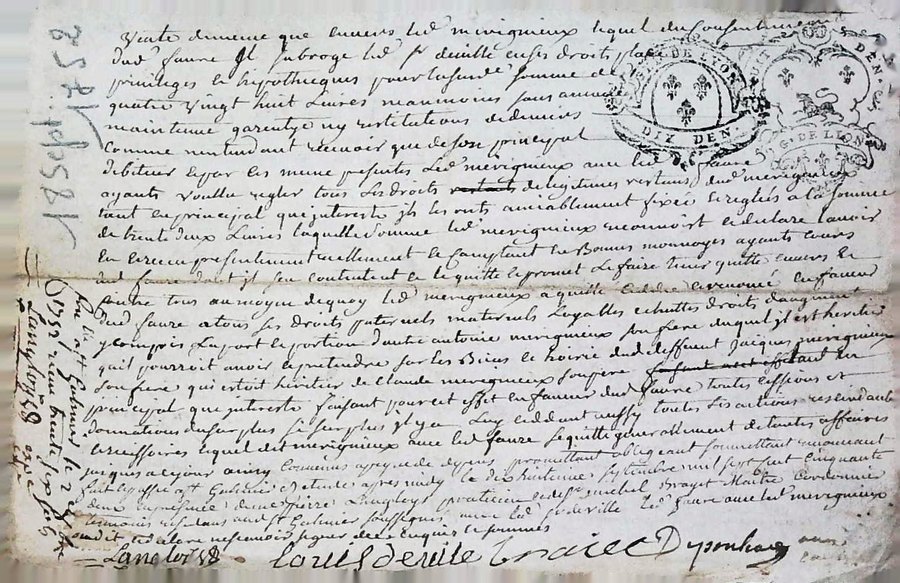 vente de meme que envers led merignieux lequel du consentement
dud faure Il subroge led Sr deville en ses droits place
privileges et hipotheques pour lad somme de
quatre vingt huit Livres neanmoins sans aucune
maintenue garentye ny restitutions de deniers
comme n'entendant recevoir que de son principal
debiteur et par ces meme presentes Led merignieux avec led faure
ayants voullu regler tous Les droits de legitimes dud merignieux
tant en principal que interests ils les ont amiablement fixés et reglés a la somme
de trente deux Livres laquelle somme led merignieux reconnoist et declare l'avoir
en receu presentement reellement et comptant en Bonnes monnoyes ayants cours
dud faure dont il s'en contente et le quitte et promet Le faire tenir quitte envers et
contre tous au moyen de quoy led merigneux a quitté cedé et renoncé en faveur
dud faure a tous ses droits paternels maternels Loyalles echuttes droits d'augment
y compris La part et portion d'autre antoine merigneux son frere duquel il est heritier
qu'il pourroit avoir et pretendre sur les Biens et hoirie dud deffunt Jacques merignieux
son frere qui estoit heritier de Claude merignieux son pere en
principal que interests faisant pour cet effet en faveur dud faure toutes cessions et
donnations du surplus si surplus il y a Luy ceddant aussy toutes Les actions rescindantes
et rescissoires lequel dit merignieux avec led faure se quitte generallement de toutes affaires
jusques a ce jour ainsy Convenus a peyne de depens promettant obligeant soumettant renonceant
fait et passé a St Galmier etude apres midy le dix huitieme septembre mil sept cent cinquante
deux en presence de Pierre Langloys praticien et de Sr michel Brayet Maitre Cordonnier
temoins residans aud St Galmier soussignés avec led Sr deville Led faure avec led merignieux
ont declaré ne scavoir signer de ce enquis et sommés
Langlois Louis deville braiet Deponhaus
18 Sept. 1752
G. DE LYON
DIX DEN.
DEN.
G. DE LYON
St Galmier le 2
1752 receu trente six sols
Langlois